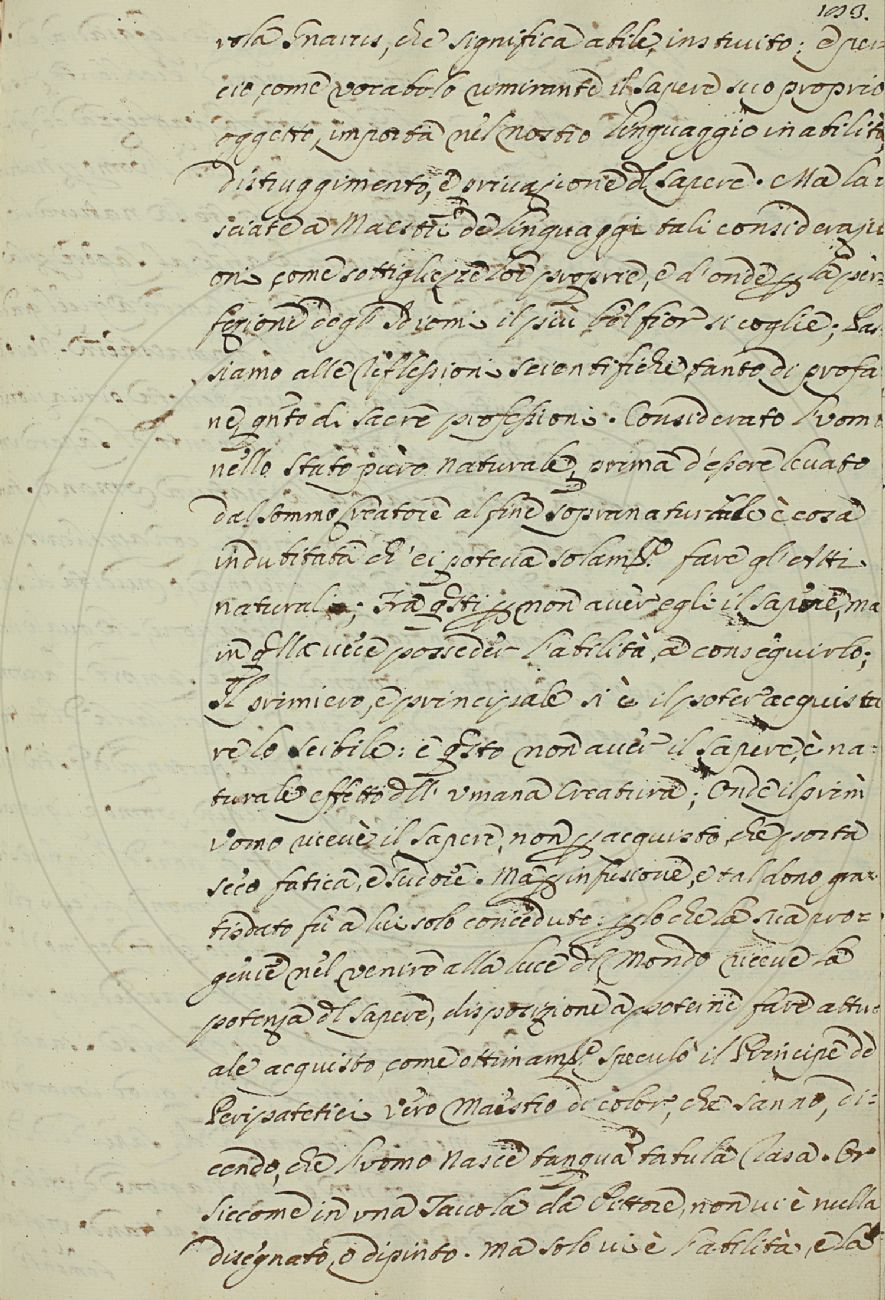 103.
rola Gnarus, che significa abile, instruito; e per-
ciò come vocabolo rimirante il sapere suo proprio
oggetto, importa nel nostro linguaggio inabilità,
distruggimento, e privazione dl sapere. Ma la-
sciate a Maestri de linguaggi tali considerazi-
oni come sottigliezze lor proprie, e d'onde p la per-
fezione degl' Idiomi il più bel fior si coglie; Pas-
siamo alle riflessioni scientifiche tanto di profa-
ne, qnto di sacre professioni. Considerato l'vomo
nello stato puro naturale, prima d'essere levato
dal sommo Creatore al fine sopranaturale è cosa
indubitata ch'ei poteva solamte fare gl'Atti
naturali; Frà qsti p non aver egli il sapere, ma
in qlla vece posseder l'abilità, a conseguirlo;
Il primiero, e principale si è il poter acquista-
re lo scibile: e qsto non aver il sapere, è na-
turale effetto dll' vmana Creatura; Onde il prim
vomo riceuè il sapere, non p acquisto, che porta
seco fatica, e sudore. Ma p infusione, e tal dono gra-
tisdato fù a lui solo conceduto: p lo che la sua pro-
genie nel venire alla luce dl Mondo riceue la
potenza dl sapere, disposizione a poterne fare attu-
ale acquisto, come ottimamte speculò il Principe de
Peripatetici vero Maestro di color, che sanno, di-
cendo, che l'vomo nasce tanqua tabula rasa. Or
siccome in vna Tauola da Pittore, non ui è nulla
disegnato, o dipinto. Ma solo ui è l'abilità, e la